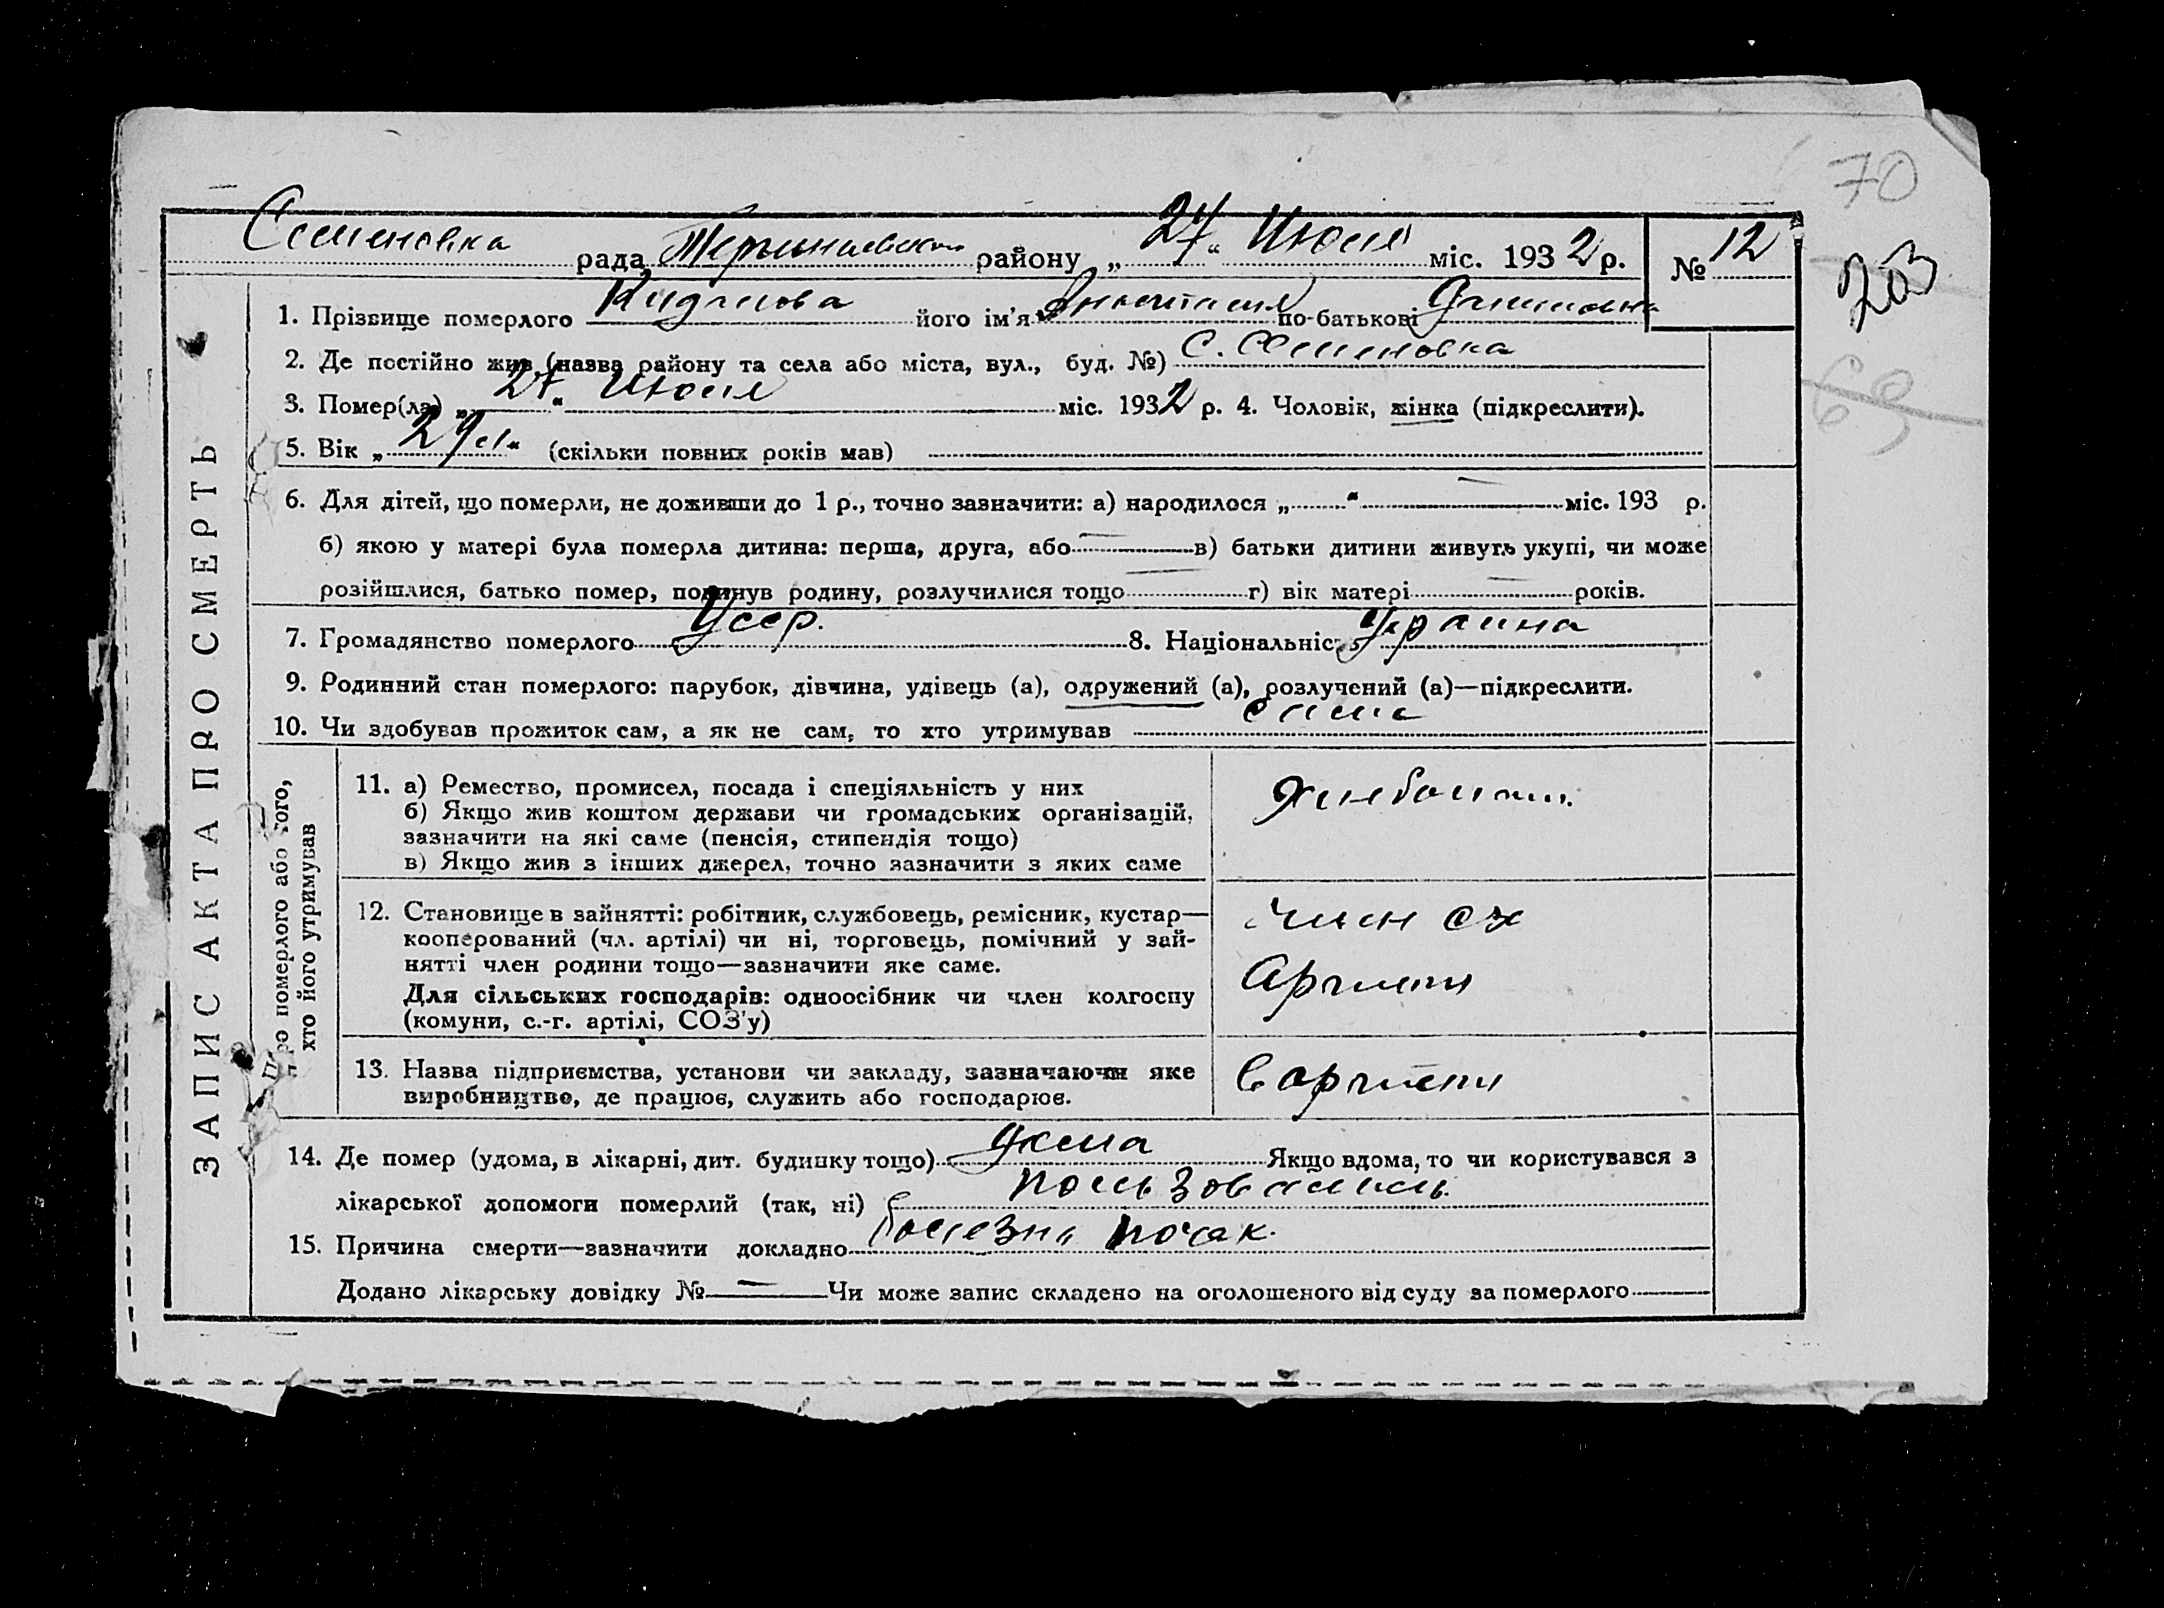 70
Семеновка рада районy „ 27 “ Июля міс. 1932 р. № 12
203
1. Прізвище померлого його ім'я Анастасия по-батькові
2. Де постійно жив (назва району та села або міста, вул., буд. №) с. Семеновка
3. Помер(ла) „ 27 “ Июля міс. 1932 р. 4. Чоловік, жінка (підкреслити).
69
5. Вік „ “ (скільки повних років мав)
6. Для дітей, що померли, не доживши до 1 р., точно зазначити: а) народилося „ — “ міс. 193 р.
б) якою у матері була померла дитина: перша, друга, або — в) батьки дитини живуть укупі, чи може
розійшлися, батько помер, покинув родину, розлучилися тощо — г) вік матері — років.
7. Громадянство померлого Усср. 8. Національність Украина
9. Родинний стан померлого: парубок, дівчина, удівець (а), одружений (а), розлучений (а)—підкреслити.
10. Чи здобував прожиток сам, а як не сам, то хто утримував сама
ЗАПИС АКТА ПРО СМЕРТЬ
Про померлого або того,
хто його утримував
11. а) Ремество, промисел, посада і спеціяльність у них
б) Якщо жив коштом держави чи громадських організацій,
зазначити на які саме (пенсія, стипендія тощо)
в) Якщо жив з інших джерел, точно зазначити з яких саме
12. Становище в зайнятті: робітник, службовець, ремісник, кустар—
кооперований (чл. артілі) чи ні, торговець, помічний у зай-
нятті член родини тощо—зазначити яке саме.
Для сільських господарів: одноосібник чи член колгоспу
(комуни, с.-г. артілі, СОЗ'у)
член сх
Артели
13. Назва підприємства, установи чи закладу, зазначаючи яке
виробництво, де працює, служить або господарює.
в артели
14. Де помер (удома, в лікарні, дит. будинку тощо) Якщо вдома, то чи користувався з
лікарської допомоги померлий (так, ні) пользовалась
15. Причина смерти—зазначити докладно болезнь почак.
Додано лікарську довідку № — Чи може запис складено на оголошеного від суду за померлого